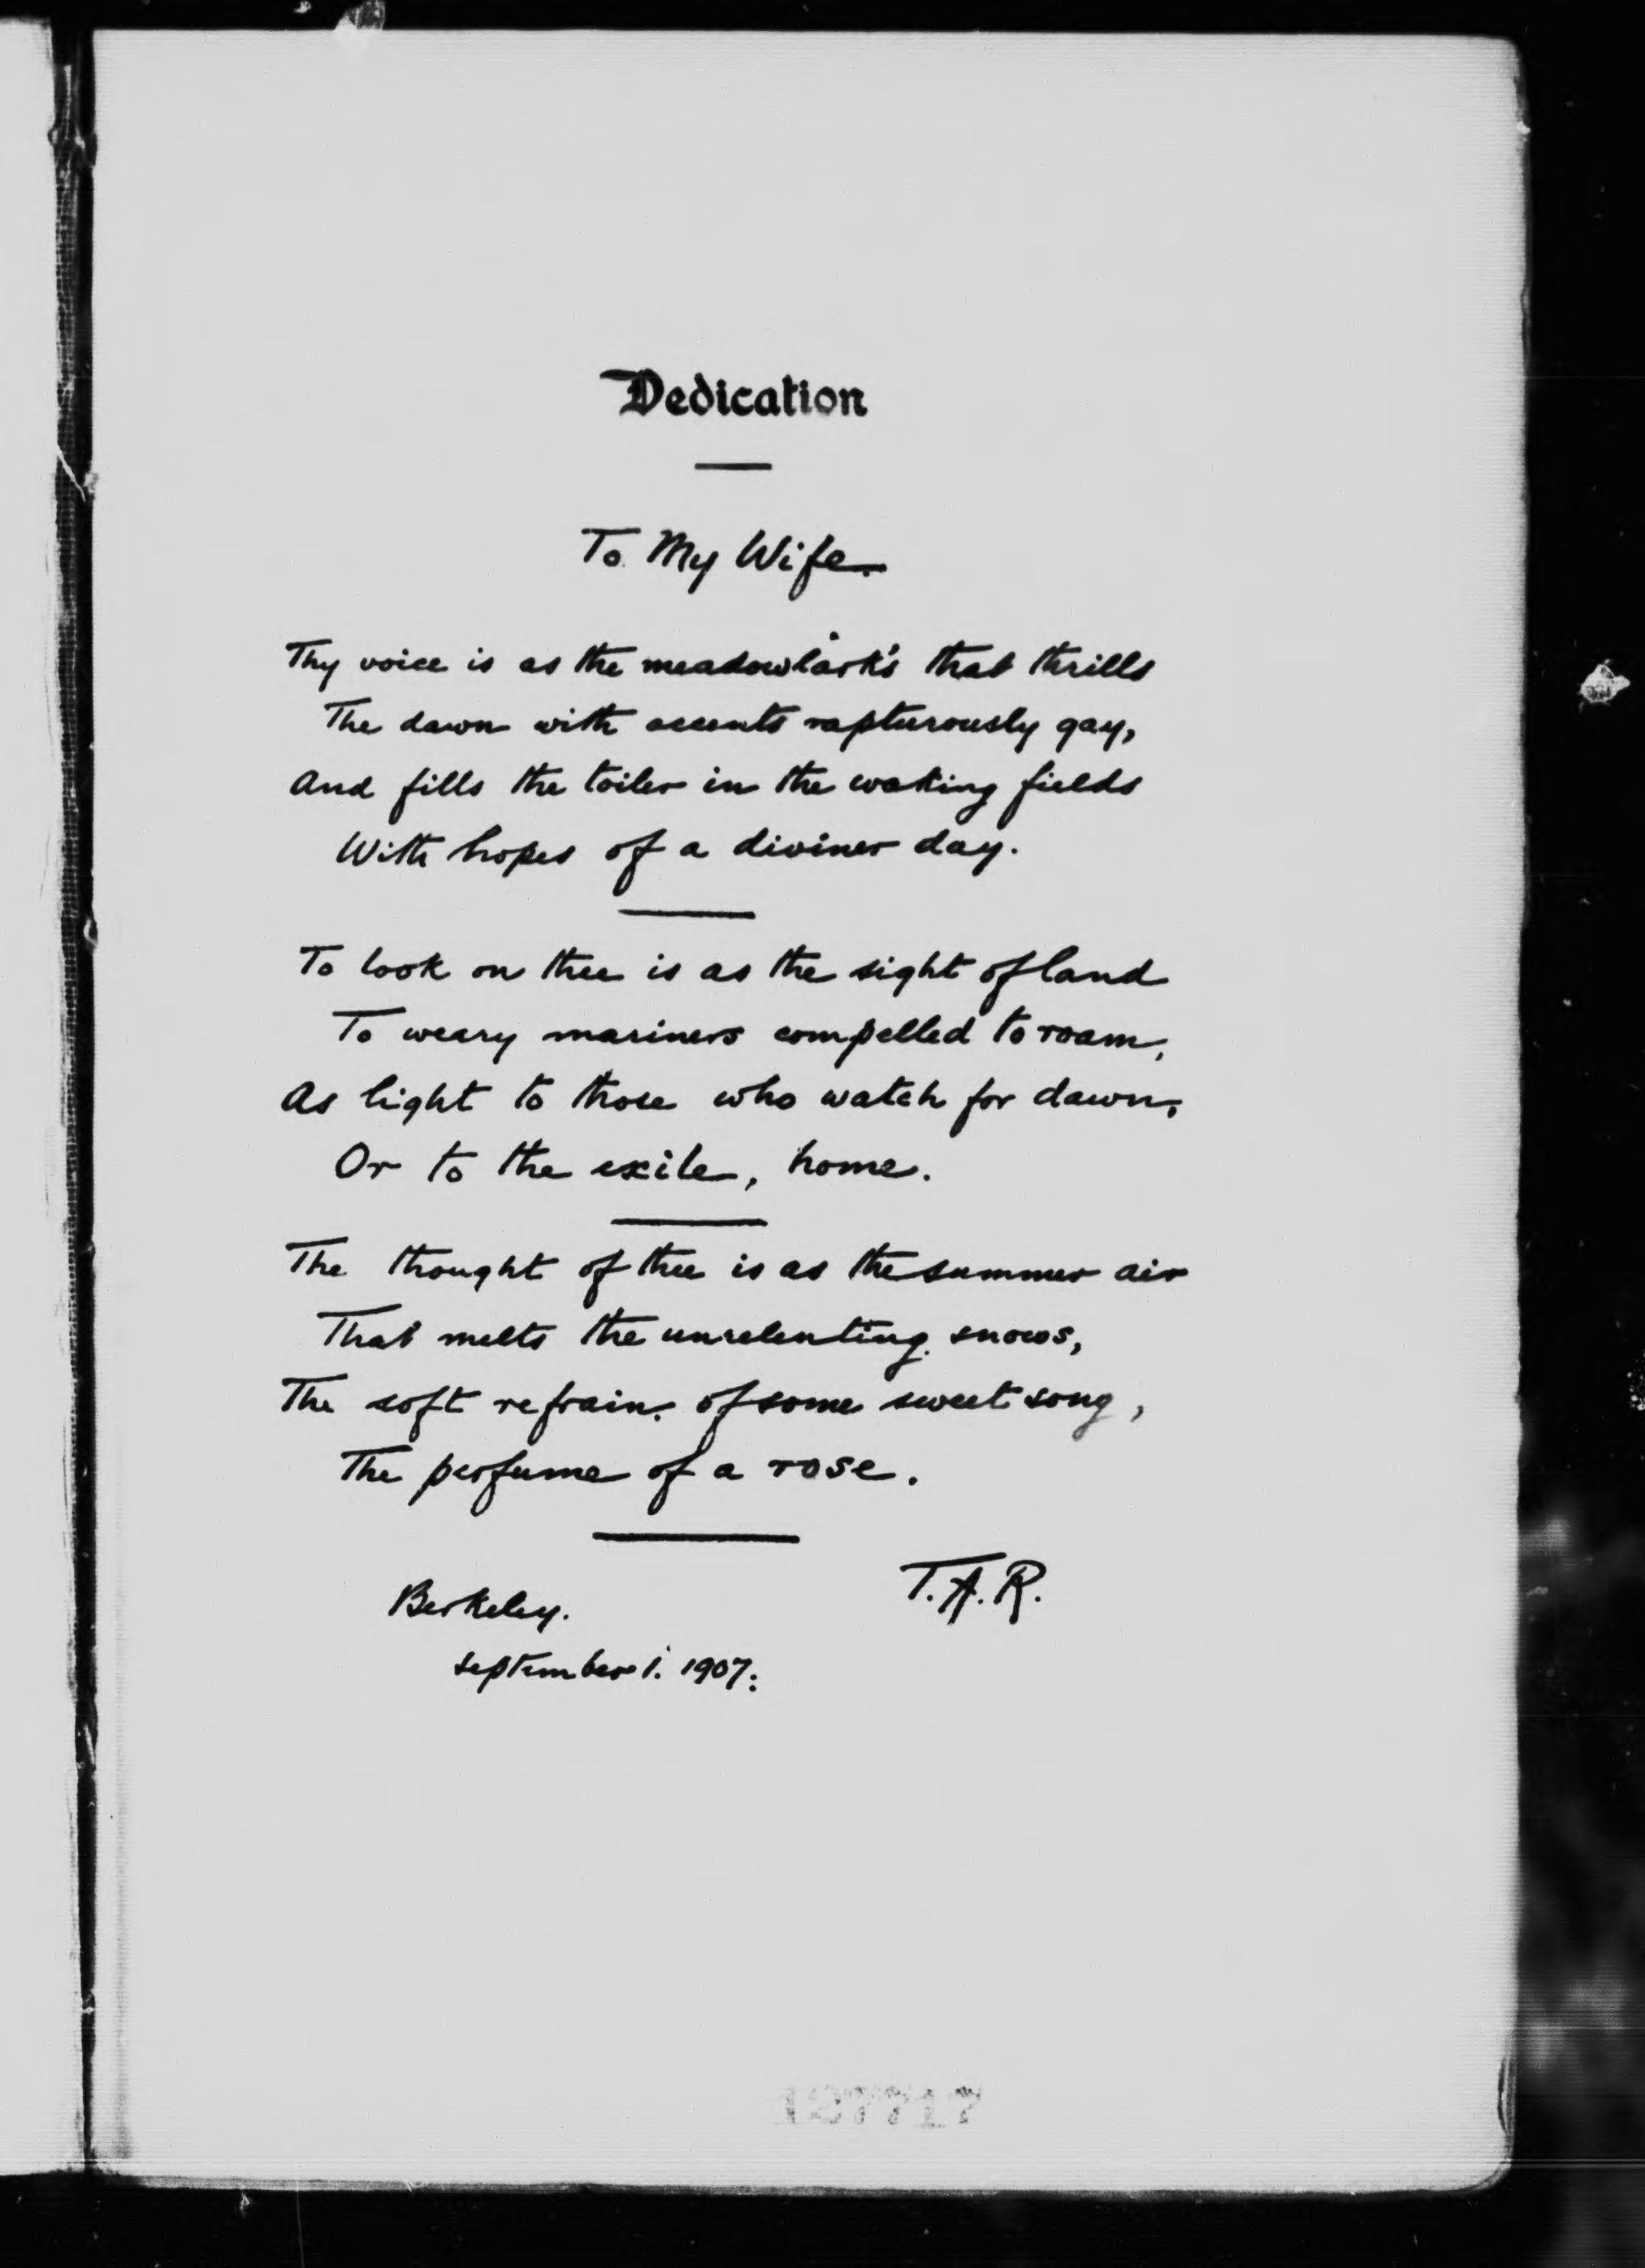 Dedication
To My Wife.
Thy voice is as the meadowlark's that thrills
The dawn with accents rapturously gay,
And fills the toiler in the waking fields
With hopes of a diviner day.
To look on thee is as the sight of land
To weary mariners compelled to roam,
As light to those who watch for dawn,
Or to the exile, home.
The thought of thee is as the summer air
That melts the unrelenting snows,
The soft refrain of some sweet song,
The perfume of a rose.
T.A.R.
Berkeley.
September 1. 1907.
127717